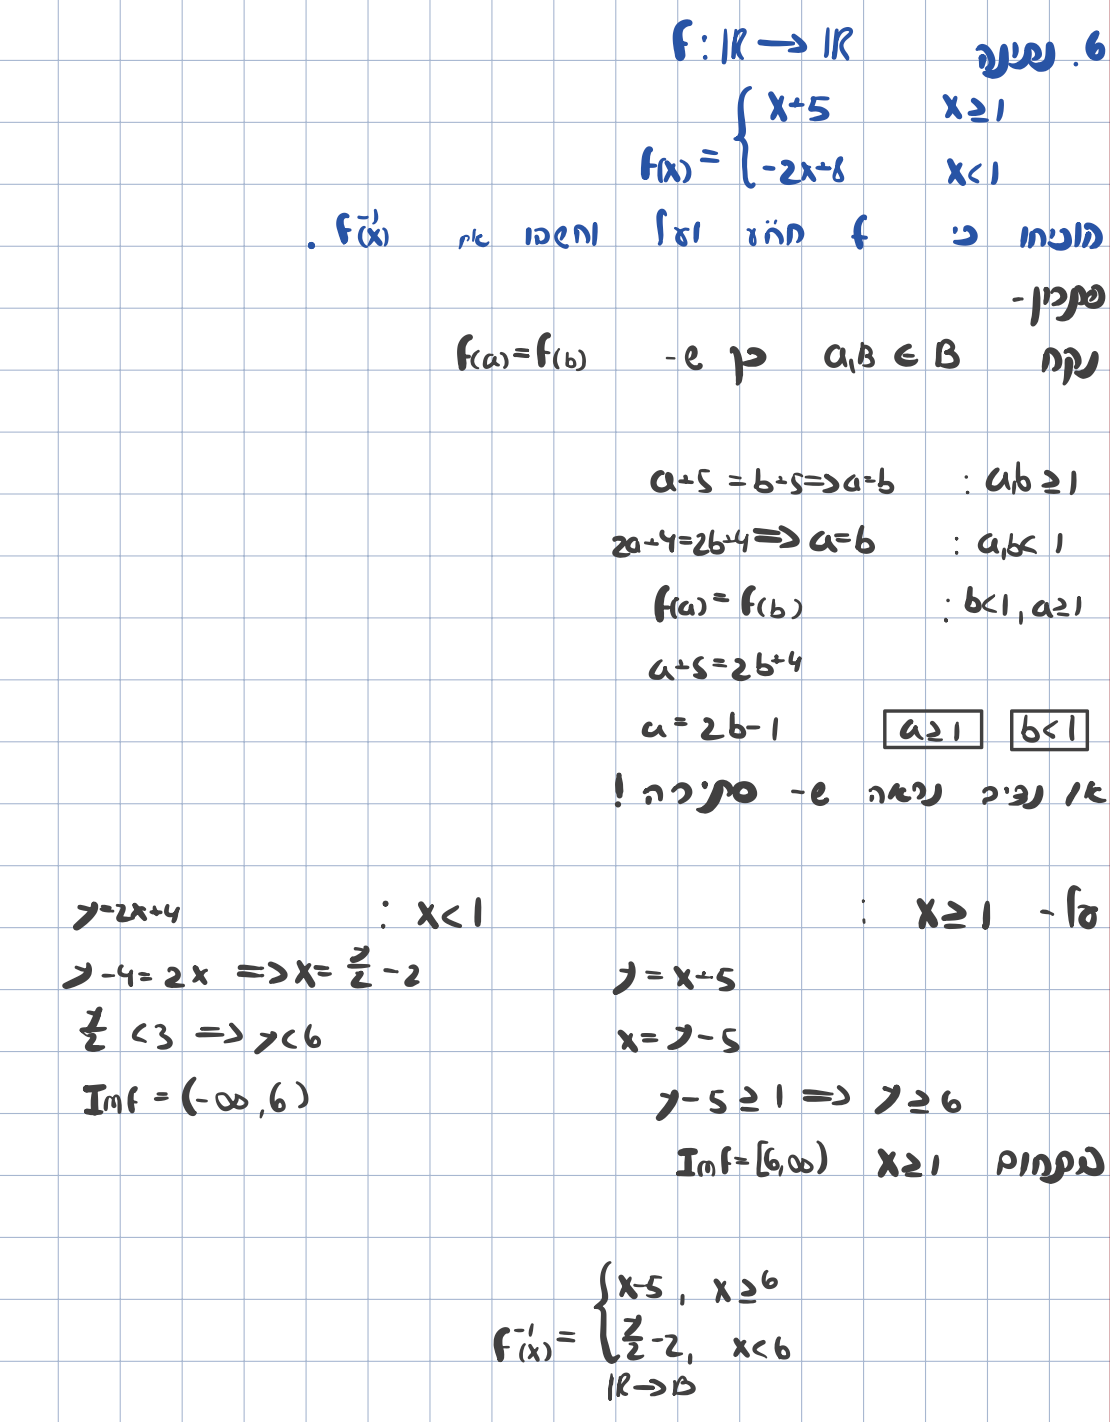 6. נתינה f: ℝ → ℝ
f(x) = { x+5 x≥1
-2x+8 x<1
הוכיחו כי f חח"ע ועל וחשבו את f⁻¹(x).
פתרון-
נקח a,B ∈ B כך ש- f(a)=f(b)
a,b ≥ 1 : a+5 = b+5 => a=b
a,b < 1 : 2a+4=2b+4 => a=b
b<1, a≥1 : f(a) = f(b)
a+5=2b+4
a = 2b-1 a≥1 b<1
אז נציב נראה ש- סתירה!
על- x ≥ 1 :
y = x+5
x = y-5
y-5 ≥ 1 => y ≥ 6
בתחום x≥1 Imf=[6,∞)
x<1 : y=2x+4
y-4=2x => x= y/2 -2
y/2 <3 => y<6
Imf = (-∞,6)
f⁻¹(x) = { x-5, x≥6
y/2 -2, x<6
ℝ→B